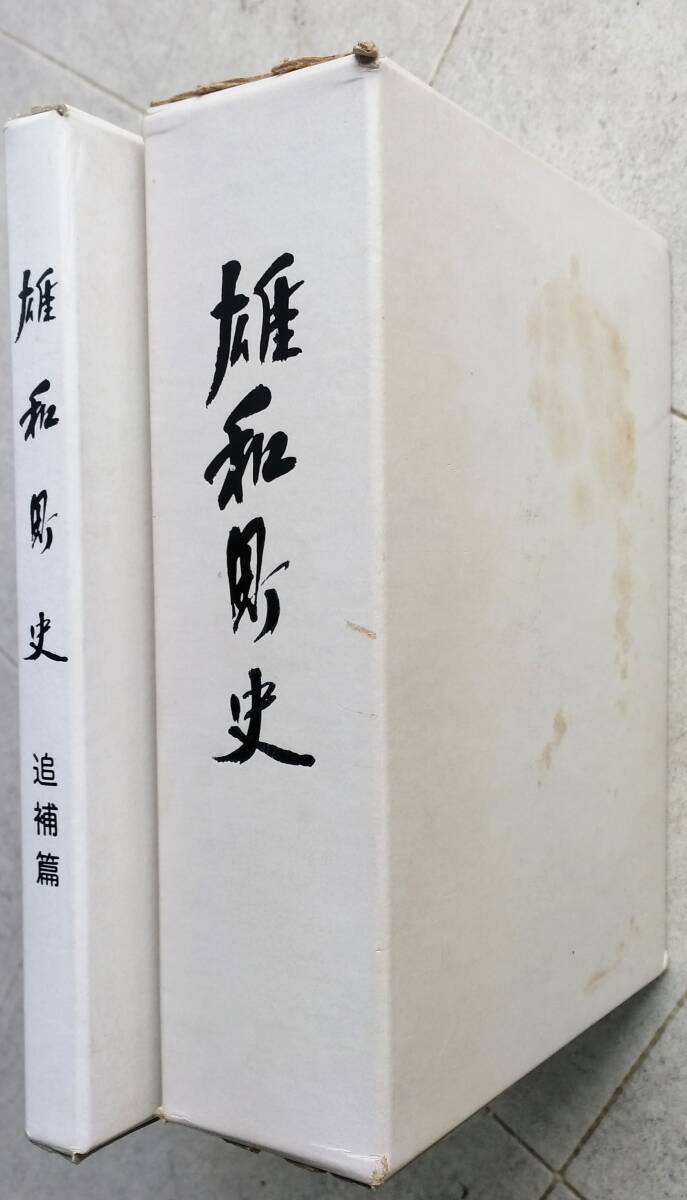 雄和町史
雄和町史 追補篇